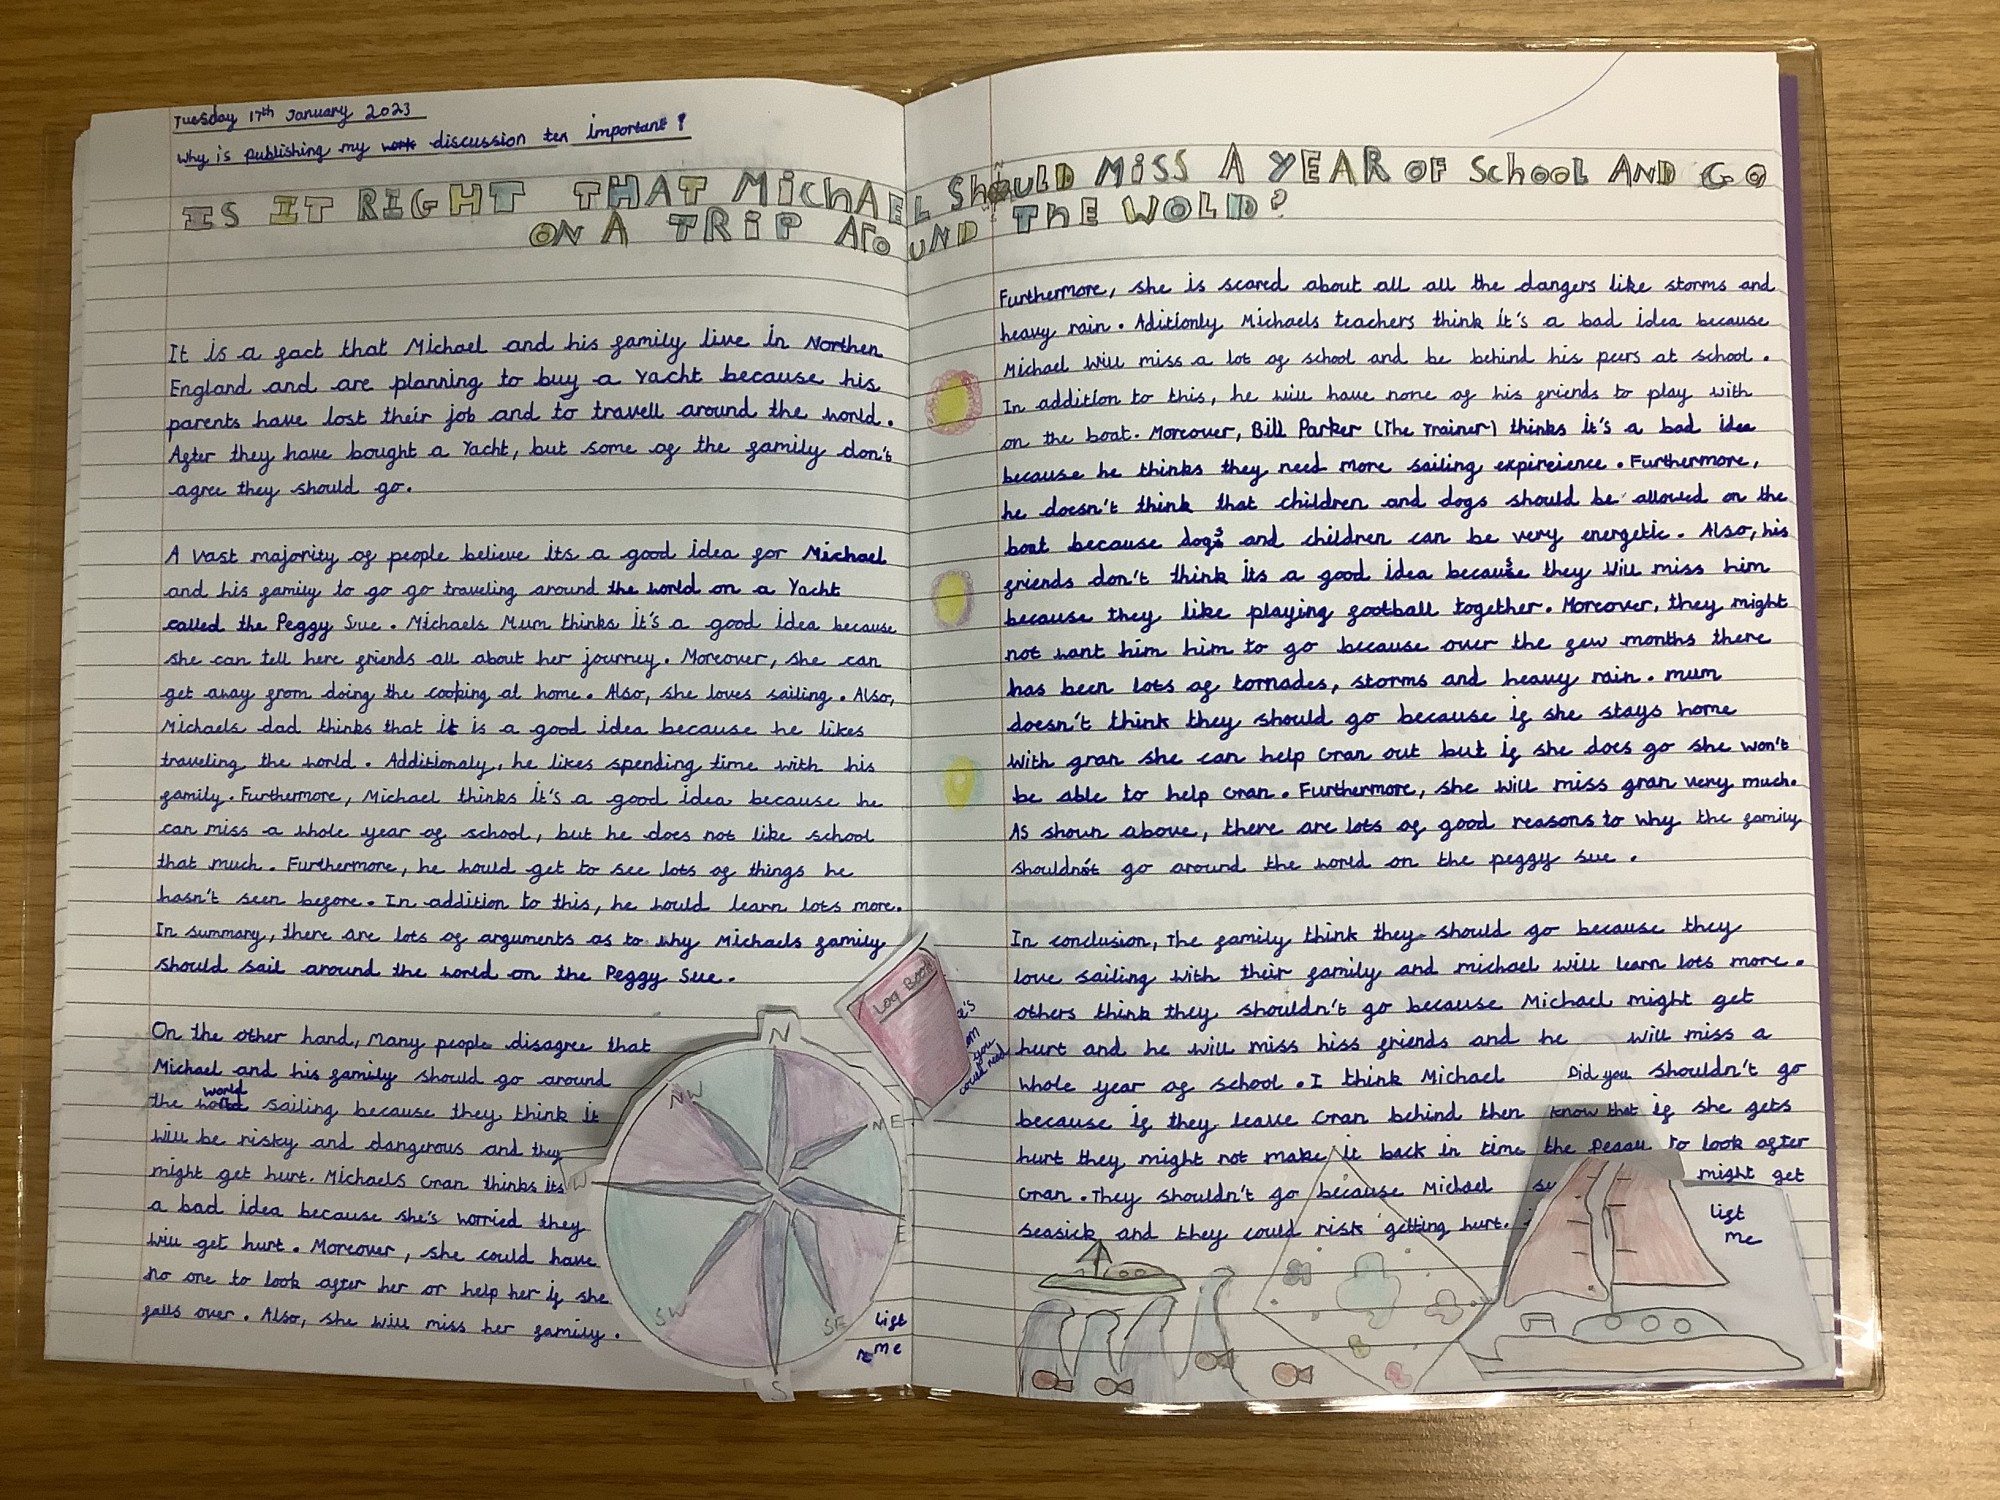 Tuesday 17th January 2023
Why is publishing my work discussion tex important?
IS IT RIGHT THAT MICHAEL SHOULD MISS A YEAR OF SCHOOL AND GO
ON A TRIP AROUND THE WOLD?
It is a fact that Michael and his family live in Northen
England and are planning to buy a Yacht because his
parents have lost their job and to travell around the world.
After they have bought a Yacht, but some of the family don't
agree they should go.
A vast majority of people believe its a good idea for Michael
and his family to go go traveling around the world on a Yacht
called the Peggy Sue. Michaels Mum thinks it's a good idea because
she can tell here friends all about her journey. Moreover, she can
get away from doing the cooking at home. Also, she loves sailing. Also,
Michaels dad thinks that it is a good idea because he likes
traveling the world. Additionaly, he likes spending time with his
family. Furthermore, Michael thinks it's a good idea because he
can miss a whole year of school, but he does not like school
that much. Furthermore, he would get to see lots of things he
hasn't seen before. In addition to this, he would learn lots more.
In summary, there are lots of arguments as to why Michaels family
should sail around the world on the Peggy Sue.
On the other hand, many people disagree that
Michael and his family should go around
world
the sailing because they think it
will be risky and dangerous and they
might get hurt. Michaels Gran thinks its
a bad idea because she's worried they
will get hurt. Moreover, she could have
no one to look after her or help her if she
falls over. Also, she will miss her family.
N
NW
NE
W
E
SW
SE
S
lift
me
LOG BOOK
you
could need
Furthermore, she is scared about all all the dangers like storms and
heavy rain. Aditionly Michaels teachers think it's a bad idea because
Michael will miss a lot of school and be behind his peers at school.
In addition to this, he will have none of his friends to play with
on the boat. Moreover, Bill Parker (The Trainer) thinks it's a bad idea
because he thinks they need more sailing expireience. Furthermore,
he doesn't think that children and dogs should be allowed on the
boat because dogs and children can be very energetic. Also, his
friends don't think its a good idea because they will miss him
because they like playing football together. Moreover, they might
not want him him to go because over the few months there
has been lots of tornades, storms and heavy rain. mum
doesn't think they should go because if she stays home
with gran she can help Gran out but if she does go she won't
be able to help Gran. Furthermore, she will miss gran very much.
As shown above, there are lots of good reasons to why the family
shouldn't go around the world on the peggy sue.
In conclusion, The family think they should go because they
love sailing with their family and michael will learn lots more.
others think they shouldn't go because Michael might get
hurt and he will miss hiss friends and he will miss a
whole year of school. I think Michael shouldn't go
because if they leave Gran behind then if she gets
hurt they might not make it back in time to look after
Gran. They shouldn't go because Michael might get
seasick and they could risk getting hurt.
Did you
know that
the Peggy
su
lift
me